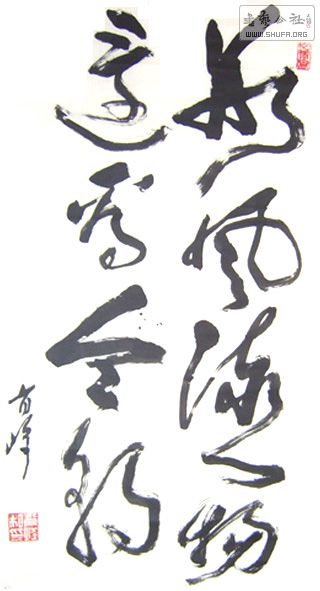 数风流人物
还看今朝
書藝公社
WWW.SHUFA.ORG